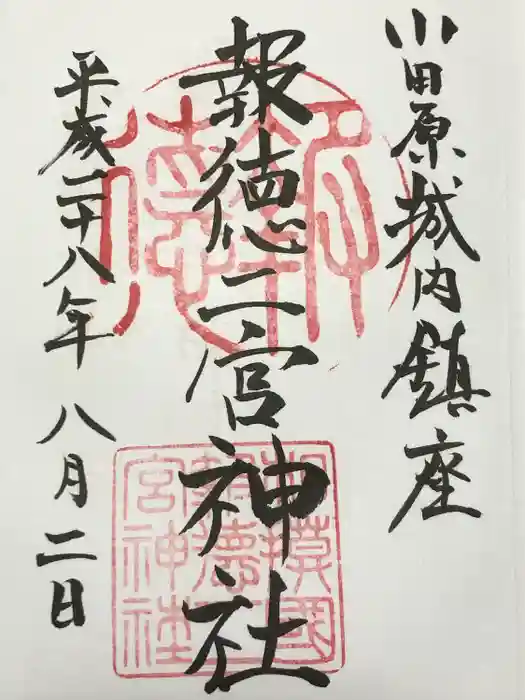 小田原城内鎮座
報徳二宮神社
平成二十八年 八月二日
報徳
相模國
報徳二
宮神社